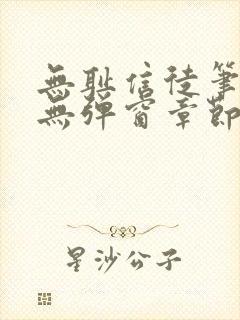 無耻信徒筆
無彈窗章節
星沙公子